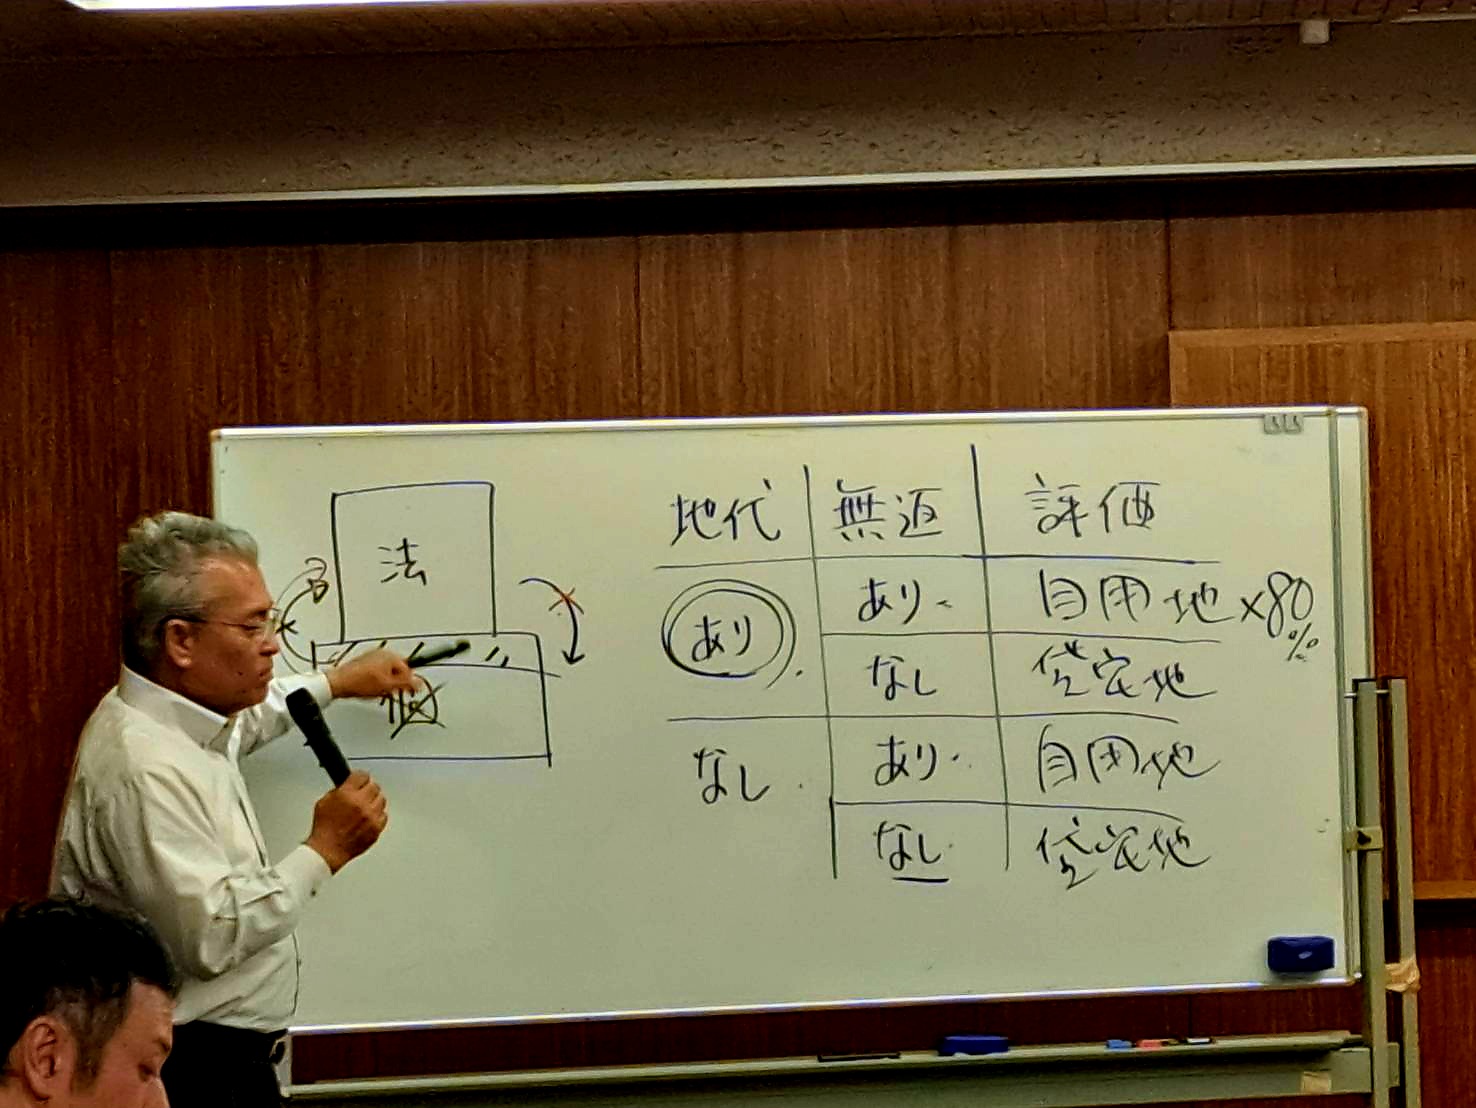 法
個
地代 無返 評価
あり あり 自用地×80%
なし 貸宅地
なし あり 自用地
なし 貸宅地